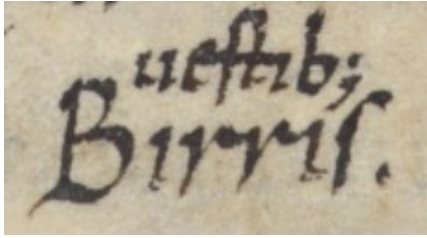 ueſtib;
Birriſ.